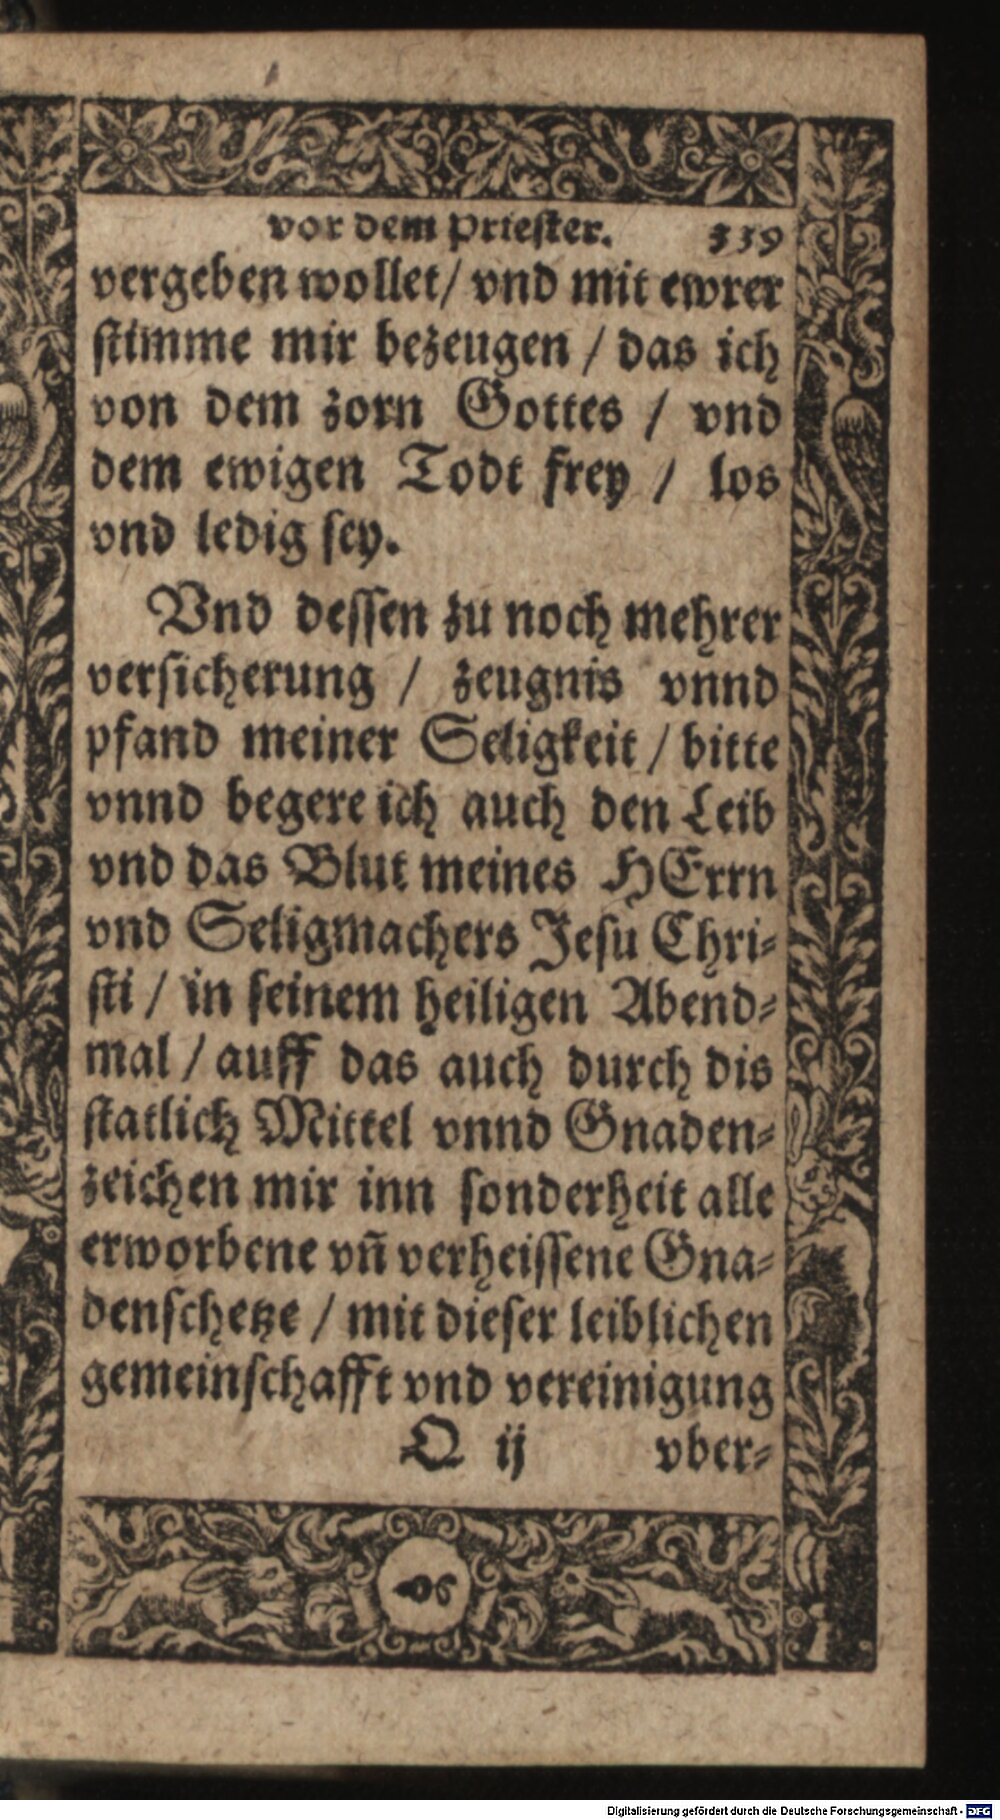 vor dem Priester. 339
vergeben wollet/ vnd mit ewrer
stimme mir bezeugen / das ich
von dem zorn Gottes / vnd
dem ewigen Todt frey / los
vnd ledig sey.
Vnd dessen zu noch mehrer
versicherung / zeugnis vnnd
pfand meiner Seligkeit / bitte
vnnd begere ich auch den Leib
vnd das Blut meines HErrn
vnd Seligmachers Jesu Chri-
sti / in seinem heiligen Abend-
mal / auff das auch durch dis
statlich Mittel vnnd Gnaden-
zeichen mir inn sonderheit alle
erworbene vñ verheissene Gna-
denschetze / mit dieser leiblichen
gemeinschafft vnd vereinigung
Q ij vber-
Digitalisierung gefördert durch die Deutsche Forschungsgemeinschaft - DFG